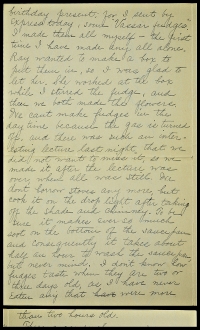 birthday present, for I sent by
express today, some Vassar fudges.
I made them all myself - the first
time I have made any all alone.
Ray wanted to make a box to
put them in, so I was glad to
let her. She worked at the box
while I stirred the fudge, and
thus we both made the flowers.
We cant make fudges in the
day time because the gas is turned
off, and there was such an inter-
esting lecture last night, that we
did not want to miss it, so we
made it after the lecture was
over which was still. We
dont borrow stoves any more, but
cook it on the drop light after taking
off the shade and chimney. To be
sure it makes ever so much
soot on the bottom of the saucepan
and consequently it takes about
half an hour to wash the saucepan,
but never mind. I don't know how
fudges taste when they are two or
three days old, as I have never
eaten any that were more
than two hours old.